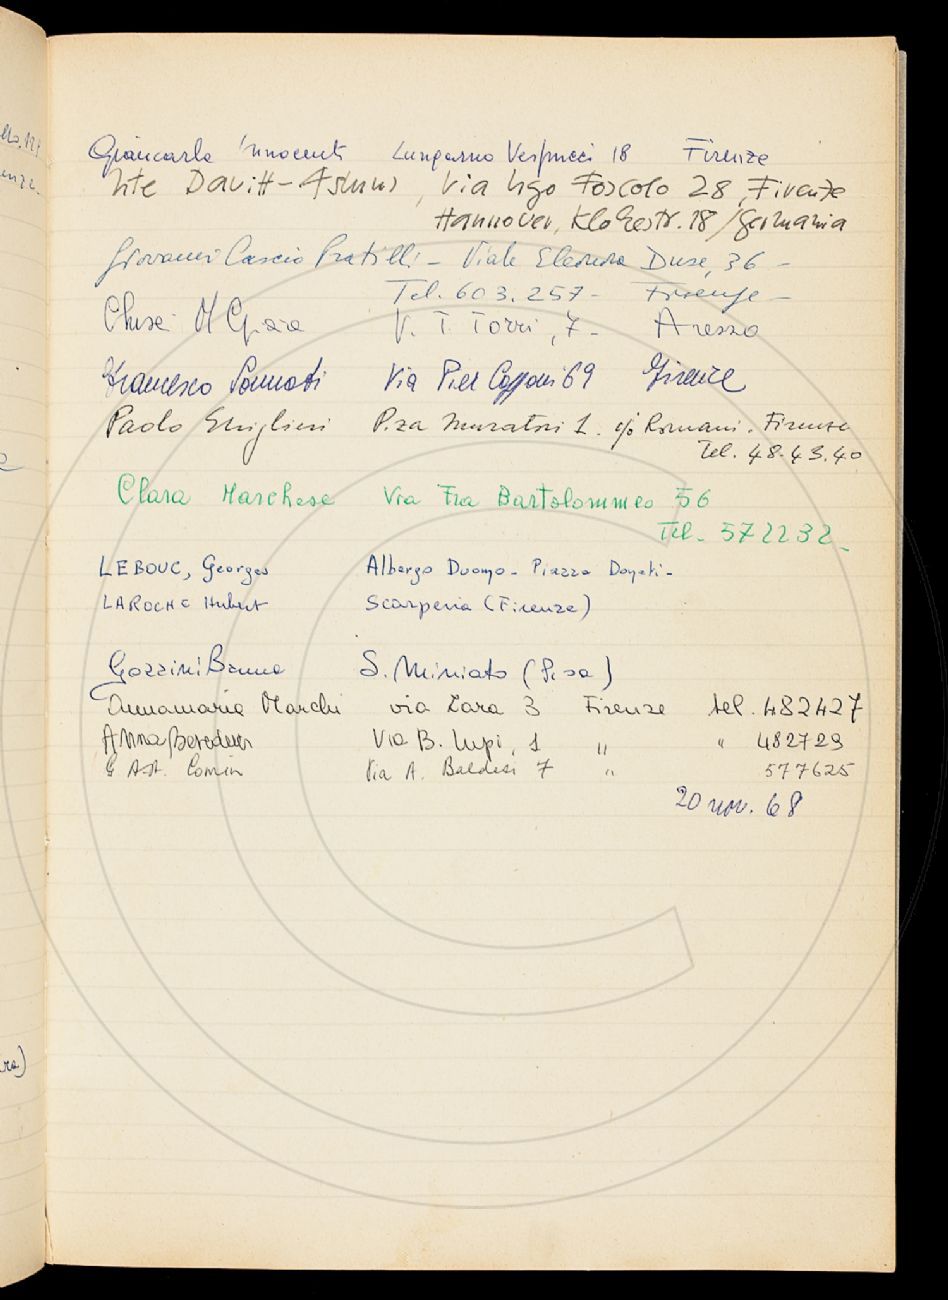 Giancarlo Innocenti Lungarno Vespucci 18 Firenze
Ute Davitt-Asmus, Via Ugo Foscolo 28, Firenze
Hannover, str. 18/Germania
Giovanni Cascio Pratilli - Viale Eleonora Duse, 36 -
Tel. 603.257 - Firenze -
V. T. Torri, 7 - Arezzo
Francesco Via Pier Capponi 69 Firenze
Paolo Ghiglieri P.za Muratori 1. c/o Romani. Firenze
Tel. 48.43.40
Clara Marchese Via Fra Bartolommeo 56
Tel. 572232-
LEBOUC, Georges Albergo Duomo - Piazza -
LAROCHE Hubert Scarperia (Firenze)
Gozzini Bruna S. Miniato (Pisa)
Annamaria Marchi via Zara 3 Firenze tel. 482427
Anna Via B. Lupi, 1 " " 482729
Via A. Baldesi 7 " 577625
20 nov. 68